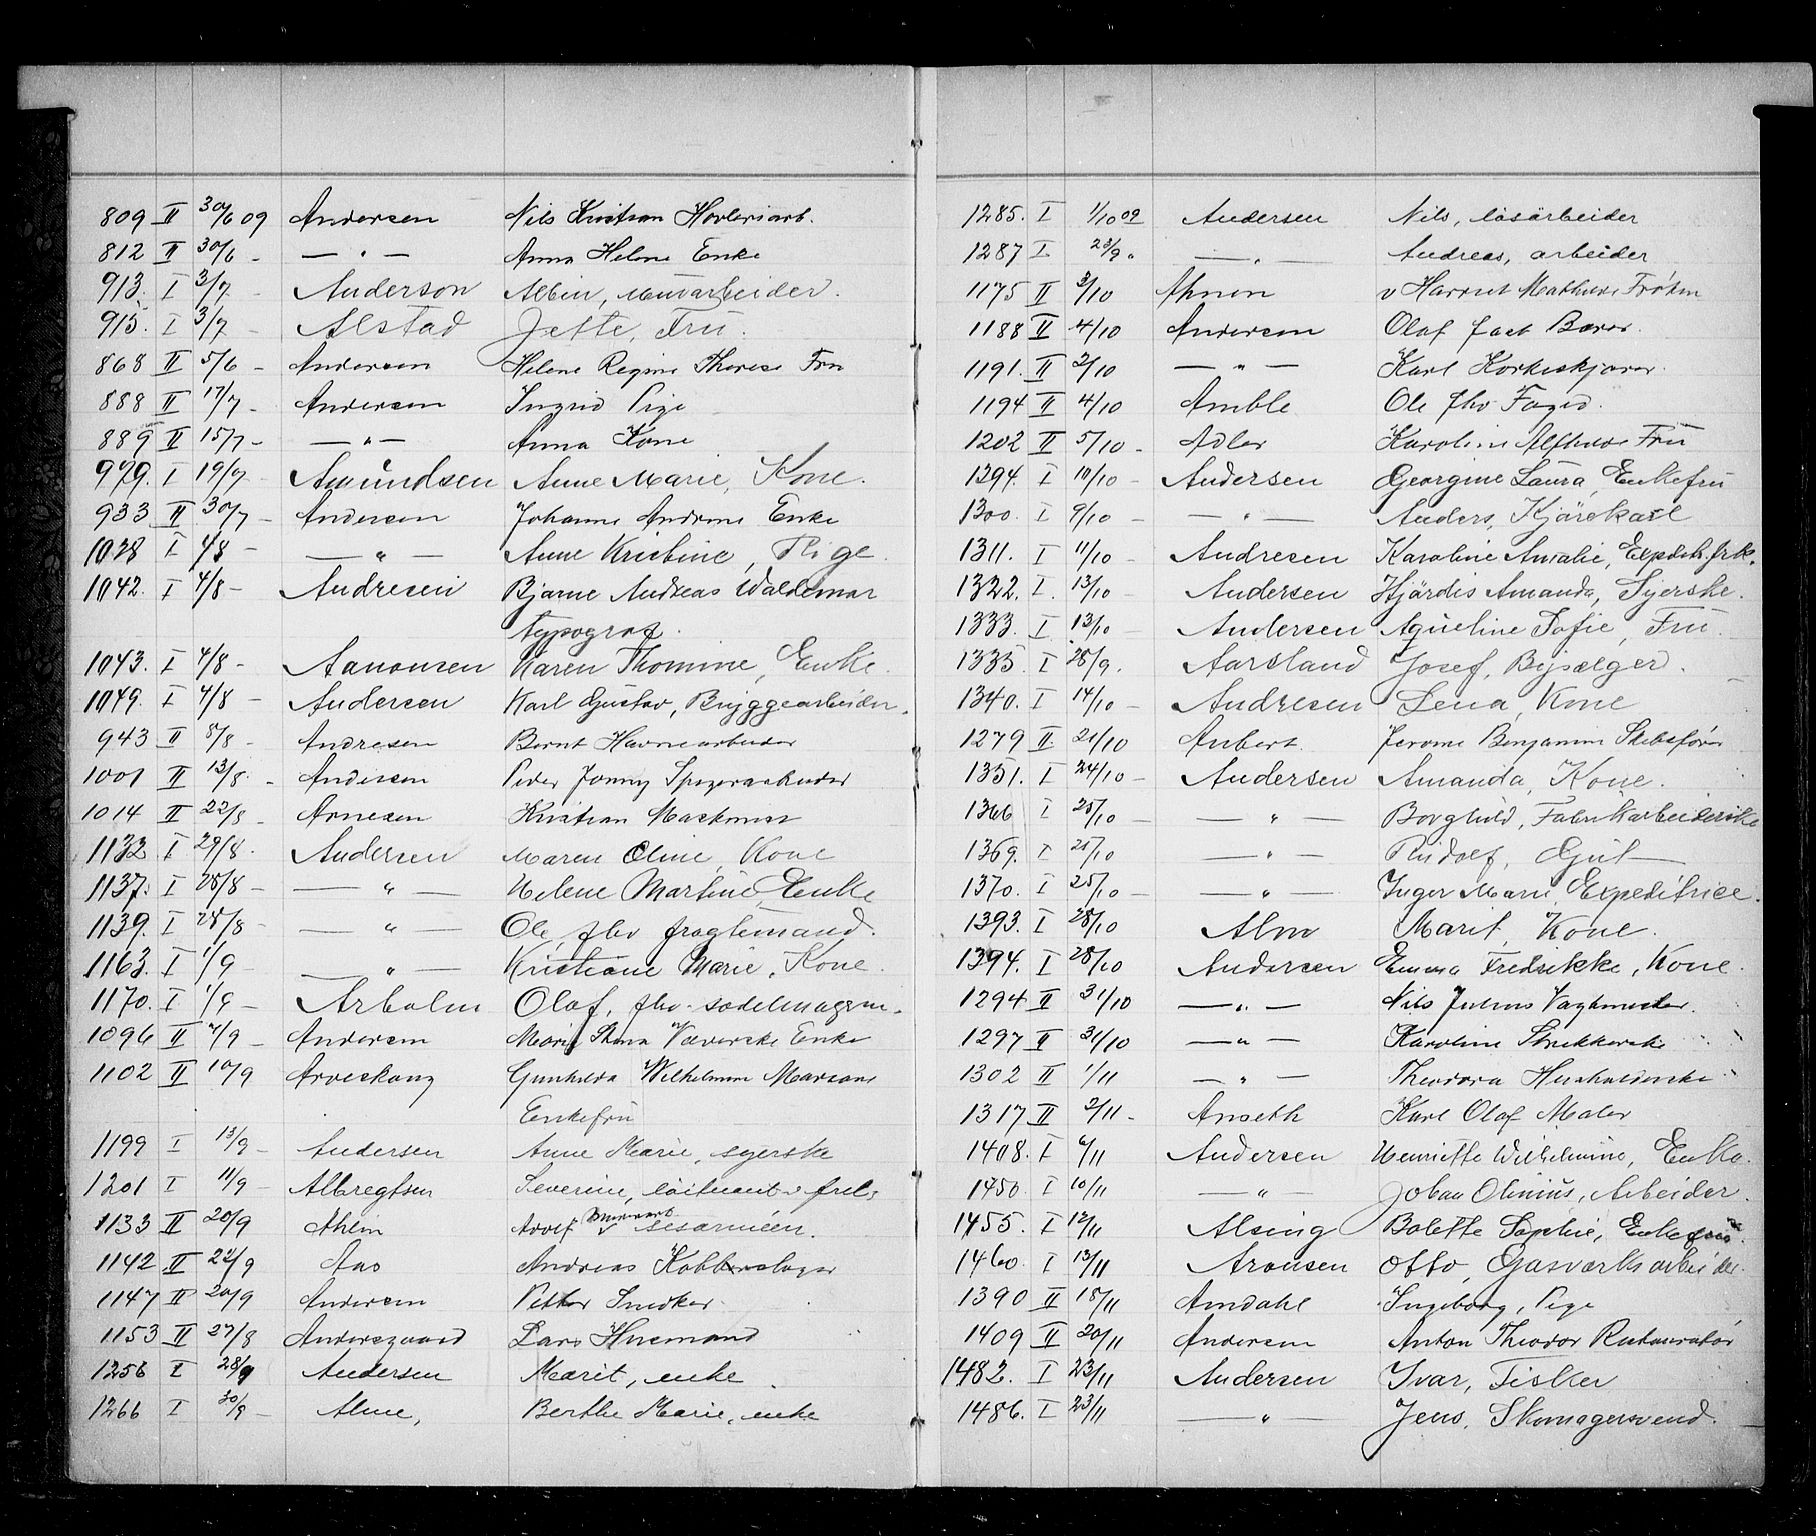 809 II 30/6 09 Andersen Nils Kristian Høvleriarb.
812 II 30/6 - — " — Anna Helene Enke
913. I 3/7 - Anderson Albin, murarbeider.
915. I 3/7 - Alstad Jette, Fru.
868 II 5/6 - Andersen Helene Regine Therese Fru
888 II 17/7 - Andersen Ingrid Pige
889 II 15/7 - — " — Anna Kone
979. I 19/7 Amundsen Anne Marie, Kone.
933 II 30/7 - Andersen Johanne Andrine Enke
1028 I 4/8 - — " — Anne Kristine, Pige.
1042. I 4/8 - Andresen Bjarne Andreas Waldemar
typograf.
1043. I 4/8 - Aanonsen Karen Thomine, Enke.
1049. I 4/8 - Andersen Karl Gustav, Bryggearbeider.
943 II 8/8 - Andresen Bernt Havnearbeider
1001 II 13/8. - Andersen Peder Jonny
1014 II 22/8 - Arnesen Kristian Maskinist
1132 I 29/8. Andersen Maren Oline, Kone
1137. I 28/8 - — " — Helene Martine, Enke
1139. I 28/8 - — " — Ole, fhv fragtemand.
1163. I 1/9 — " — Kristiane Marie, Kone.
1170. I 1/9 - Arholm Olaf, fhv. sadelmagerm.
1096 II 7/9 - Andersen Marie Stina Væverske Enke
1102 II 10/9 Arveskoug Gunhilda Wilhelmine
Enkefru
1199 I 13/9 - Andersen Anne Marie, syerske
1201 I 11/9 - Albregtsen Severine, løitnant i frels
1133 II 20/9 Ahlin Adolf Murerarb sesarnieen.
1142 II 22/9 Aas Andreas Kobberslager
1147 II 20/9 Andersen Petter Snedker
1153 II 27/8 Andersgaard Lars Husmand
1256 I 28/9 Andersen Marit, enke.
1266 I 30/9 - Alme, Berthe Marie, enke
1285. I 1/10 09 Andersen Nils, løsarbeider
1287 I 23/9 " — " — Andreas, arbeider
1175 II 3/10 v Harriet Mathilde Frøken
1188 II 4/10 Andersen Olaf Jact Bærer.
1191. II 2/10 — " — Karl Korkeskjærer.
1194 II 4/10 Amble Ole fhv Foged.
1202 II 5/10 - Adler Karoline Alfhilde Fru
1294. I 10/10 - Andersen Georgine Laura, Enkefru
1300. I 9/10 - — " — Anders, Kjørekarl
1311. I 11/10 - Andresen Karoline Amalie, Expedit. frk.
1322. I. 13/10 - Andersen Hjørdis Amanda, Syerske.
1333. I 13/10 - Andersen Aqueline Sofie, Fru.
1335. I 28/9. Aarsland Josef, Bysælger.
1340. I 14/10 - Andresen Lena, Kone
1279 II. 21/10 Aubert Jerome Benjamin Skibsfører
1351. I 24/10 - Andersen Amanda, Kone.
1366 I 25/10 - — " — Borghild, Fabrikarbeiderske
1369. I 25/10 — " — Rudolf, Gut
1370. I 25/10 - — " — Inger Marie, Expeditrice.
1393. I 28/10 Alm Marit, Kone.
1394. I 28/10 Andersen Emma Fredrikke, Kone.
1294 II 31/10 — " — Nils Julius Vagtmester.
1297 II 31/10 — " — Karoline Strikkerske
1302 II 1/11 — " — Theodora Husholderske
1317 II 2/11 - Anseth Karl Olaf Maler
1408. I 6/11 Andersen Henriette Wilhelmine, Enke.
1450. I 10/11 — " — Johan Olinius, Arbeider.
1455. I 12/11 Alsing Bolette Sophie, Enkefru.
1460. I 13/11 Aronsen Otto, Gasværksarbeider.
1390 II 18/11 Amdahl Ingeborg, Pige
1409 II 20/11 Andersen Anton Theodor Restauratør
1482. I 23/11 Andersen Ivar, Fisker
1486. I 23/11 — " — Jens, Skomagersvend.